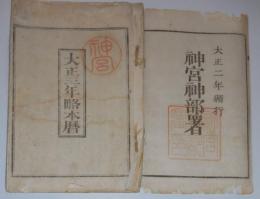 神宮
大正三年略本暦
大正二年頒行
神宮神部署